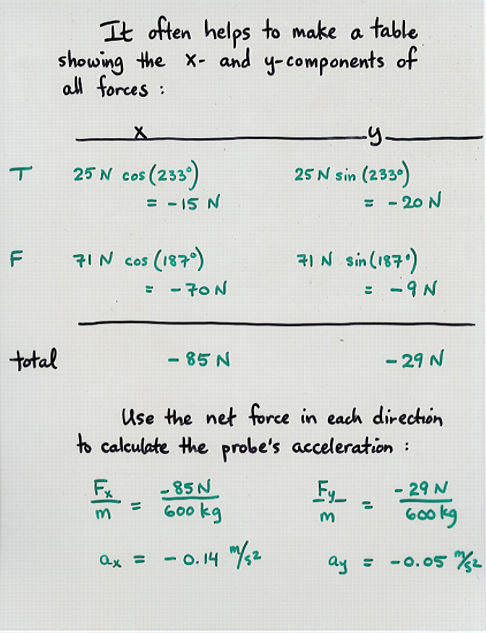 It often helps to make a table
showing the x- and y-components of
all forces :
x y
T 25 N cos (233°) 25 N sin (233°)
= -15 N = -20 N
F 71 N cos (187°) 71 N sin (187°)
= -70 N = -9 N
total -85 N -29 N
Use the net force in each direction
to calculate the probe's acceleration :
Fx/m = -85 N/600 kg Fy/m = -29 N/600 kg
ax = -0.14 m/s2 ay = -0.05 m/s2